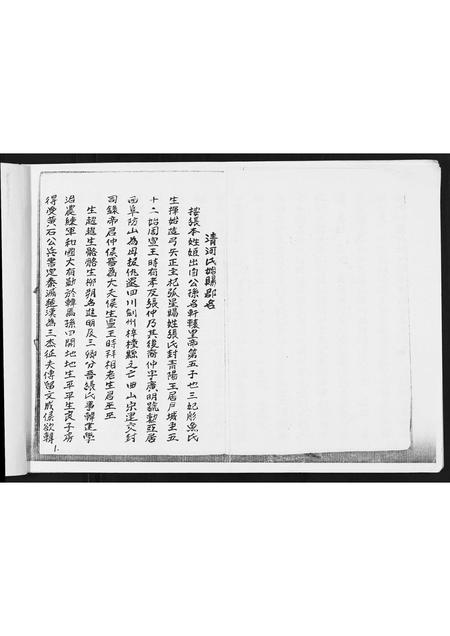 清河氏始賜郡名
按張本姓姬出自公孫名軒轅皇帝第五子也三妃彤魚氏
生揮始造弓矢正主祀弧星賜姓張氏封青陽王居尹城至五
十二始周宣王時有孝友張仲乃其後裔仲字廣明號勳亞居
西阜防山為母報仇還四川劍州梓橦縣之亡田山宗運交封
司錄帝君仲侯晉為大夫侯生靈王時拜相老生君王平
生趯趯生骼骼生柳朔名趯明及三卿分晉張氏事韓遷學
治處經軍和國大有勳於韓為孫四開地地生平平生良子房
得受黃石公兵書定秦滅楚漢為三杰征夫傅留文成侯欲韓
1.